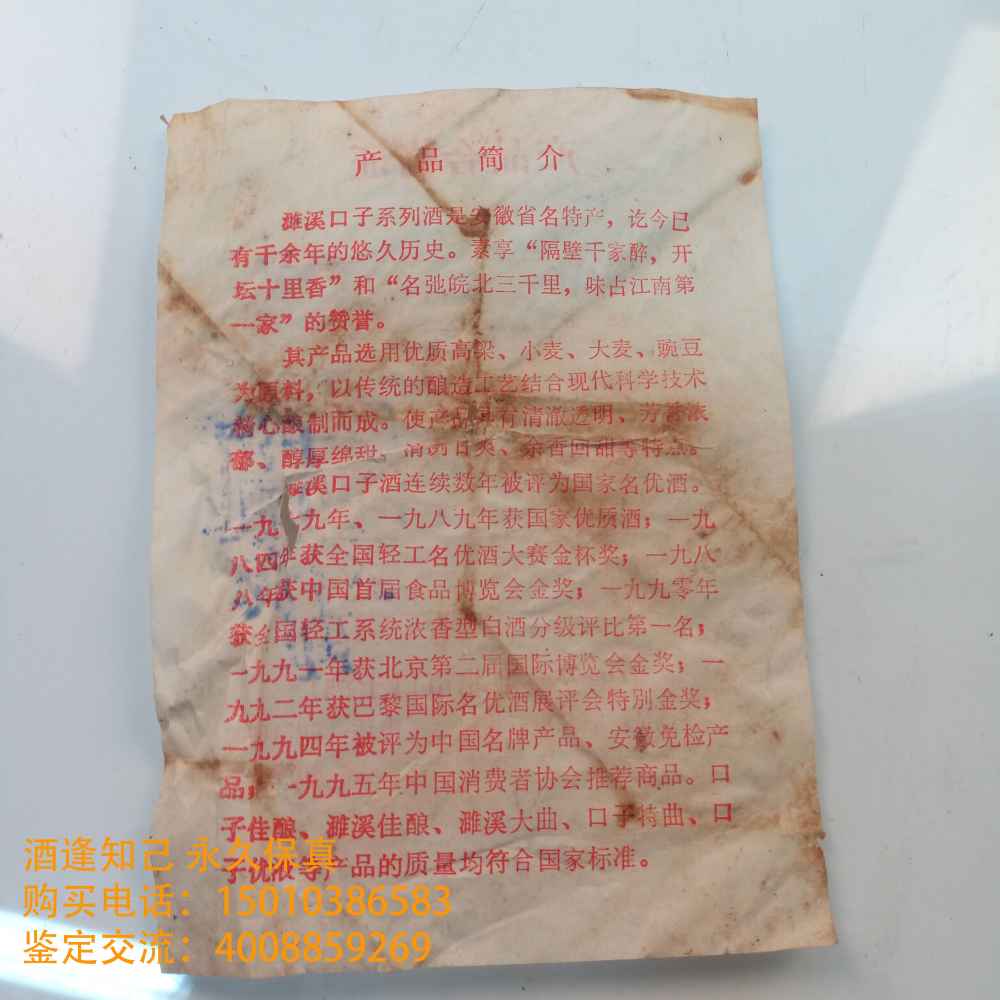 产品简介
濉溪口子系列酒是安徽省名特产，讫今已
有千余年的悠久历史。素享“隔壁千家醉，开
坛十里香”和“名弛皖北三千里，味占江南第
一家”的赞誉。
其产品选用优质高梁、小麦、大麦、豌豆
为原料，以传统的酿造工艺结合现代科学技术
精心酿制而成。使产品具有清澈透明、芳香浓
郁、醇厚绵甜、清冽甘爽、余香回甜等特点。
濉溪口子酒连续数年被评为国家名优酒。
一九七九年、一九八九年获国家优质酒；一九
八四年获全国轻工名优酒大赛金杯奖；一九八
八年获中国首届食品博览会金奖；一九九零年
获全国轻工系统浓香型白酒分级评比第一名；
一九九一年获北京第二届国际博览会金奖；一
九九二年获巴黎国际名优酒展评会特别金奖；
一九九四年被评为中国名牌产品、安徽免检产
品；一九九五年中国消费者协会推荐商品。口
子佳酿、濉溪佳酿、濉溪大曲、口子特曲、口
子优浓等产品的质量均符合国家标准。
酒逢知己 永久保真
购买电话：15010386583
鉴定交流：4008859269